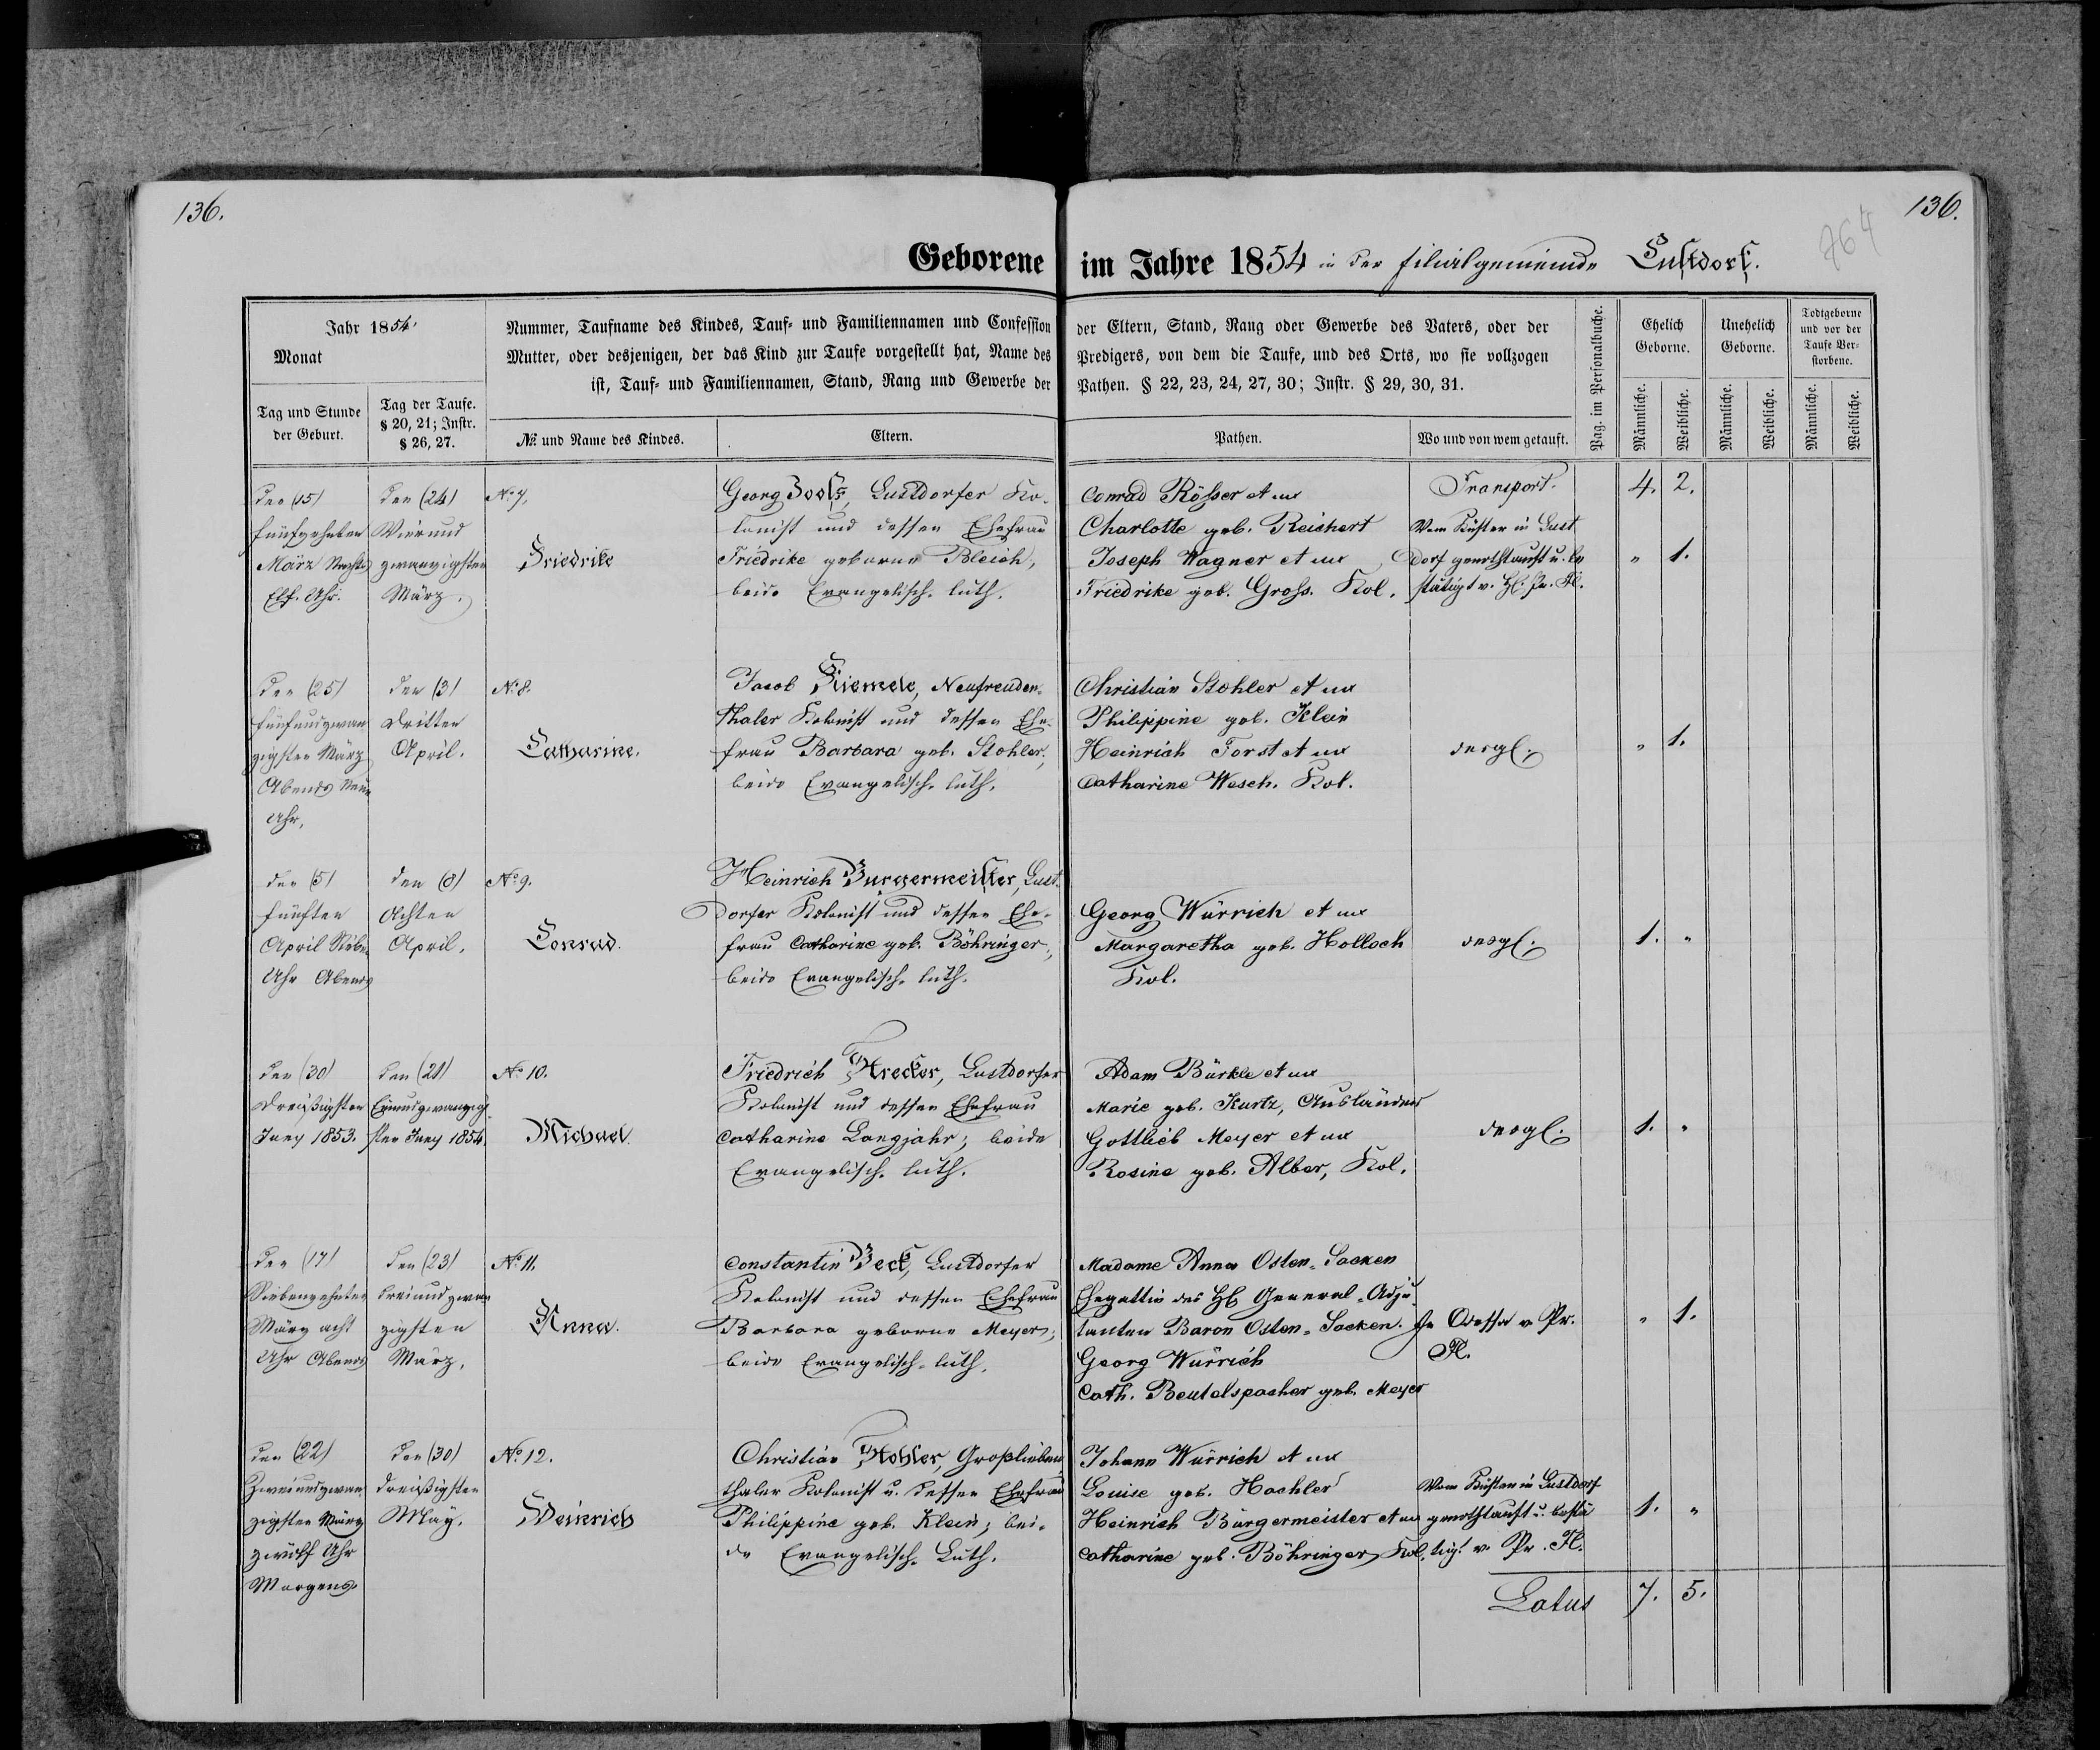 136.
136.
764
Geborene im Jahre 1854 in der Filialgemeinde Lustdorf.
Jahr 1854.
Monat
Tag und Stunde der Geburt.
Tag der Taufe. § 20, 21; Instr. § 26, 27.
Nummer, Taufname des Kindes, Tauf- und Familiennamen und Confession der Eltern, Stand, Rang oder Gewerbe des Vaters, oder der
Mutter, oder desjenigen, der das Kind zur Taufe vorgestellt hat, Name des Predigers, von dem die Taufe, und des Orts, wo sie vollzogen
ist, Tauf- und Familiennamen, Stand, Rang und Gewerbe der Pathen. § 22, 23, 24, 27, 30; Instr. § 29, 30, 31.
№ und Name des Kindes.
Eltern.
Pathen.
Wo und von wem getauft.
Pag. im Personalbuche.
Ehelich Geborne.
Unehelich Geborne.
Todtgeborne und vor der Taufe Verstorbene.
Männliche.
Weibliche.
Männliche.
Weibliche.
Männliche.
Weibliche.
Transport. 4. 2.
den (15)
fünfzehnten
März Nachts
Elf Uhr.
den (24)
Vierund
zwanzigsten
März.
No 7.
Friedrike
Georg Lustdorfer Ko-
lonist und dessen Ehefrau
Friedrike geborne Bleich,
beide Evangelisch-luth.
Conrad Rösser et ux
Charlotte geb. Reichert
Joseph Wagner et ux
Friedrike geb. Gross. Kol.
Vom Küster in Lust
dorf genothtauft u. be
stätigt v. H. Pr. Fl.
" 1.
den (25)
fünfundzwan
zigsten März
Abends Neun
Uhr.
den (3)
dritten
April.
No 8.
Catharine.
Jacob Ziemele, Neufreuden-
thaler Kolonist und dessen Ehe-
frau Barbara geb. Stohler,
beide Evangelisch-luth.
Christian Stohler et ux
Philippine geb. Klein
Heinrich Forst et ux
Catharine Wesch. Kol.
desgl.
" 1.
den (5)
fünften
April Sieben
Uhr Abends
den (8)
Achten
April.
No 9.
Conrad.
Heinrich Burgermeister, Lust-
dorfer Kolonist und dessen Ehe-
frau Catharine geb. Böhringer,
beide Evangelisch-luth.
Georg Würrich et ux
Margaretha geb. Holloch
Kol.
desgl.
1. "
den (30)
Dreißigsten
Juny 1853.
den (21)
Einundzwanzig
sten Juny 1854.
No 10.
Michael.
Friedrich Strecker, Lustdorfer
Kolonist und dessen Ehefrau
Catharine Langjahr; beide
Evangelisch-luth.
Adam Bürkle et ux
Marie geb. Kurtz, Ausländer
Gottlieb Meyer et ux
Rosine geb. Alber, Kol.
desgl.
1. "
den (17)
Siebenzehnten
März acht
Uhr Abends
den (23)
dreiundzwan
zigsten
März.
No 11.
Anna.
Constantin Beck, Lustdorfer
Kolonist und dessen Ehefrau
Barbara geborne Meyer;
beide Evangelisch-luth.
Madame Anna Osten-Sacken
Ehegattin des H. General-Adju
tanten Baron Osten-Sacken.
Georg Würrich
Cath. Beutelspacher geb. Meyer
In Odessa v. Pr.
Fl.
" 1.
den (22)
Zweiundzwan
zigsten März
zwölf Uhr
Morgens.
den (30)
dreißigsten
May.
No 12.
Heinrich
Christian Stohler, Großlieben
thaler Kolonist u. dessen Ehefrau
Philippine geb. Klein; bei-
de Evangelisch-Luth.
Johann Würrich et ux
Louise geb. Hachler
Heinrich Bürgermeister et ux
Catharine geb. Böhringer Kol.
Vom Küster in Lustdorf
genothtauft u. bestä
tigt v. Pr. Fl.
1. "
Latus 7. 5.